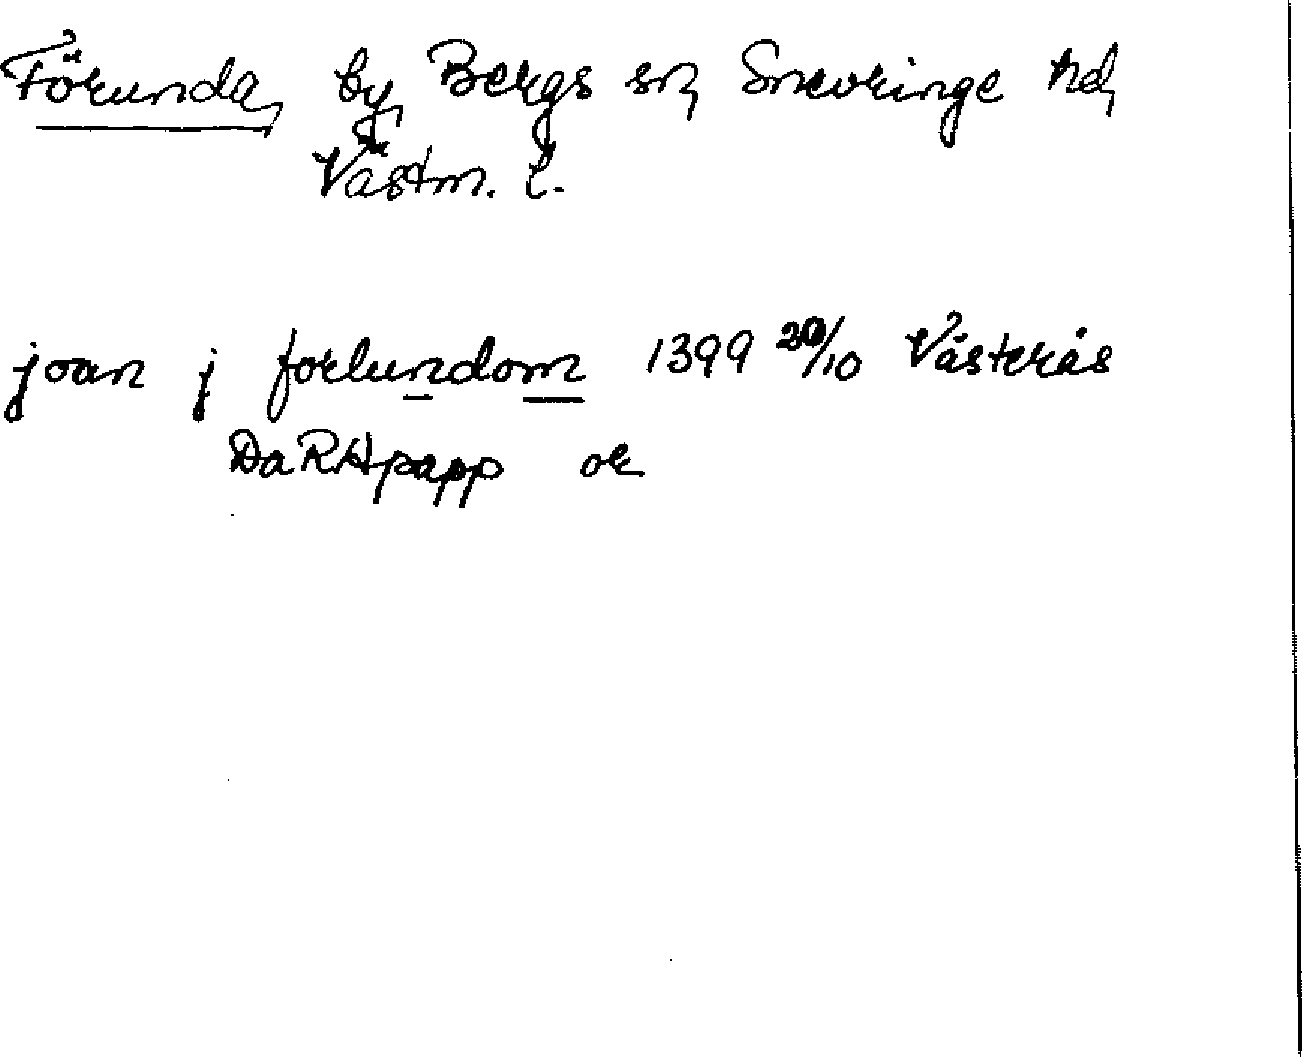 Förunda, by, Bergs sn, Snevringe hd,
Västm. l.
joan j forlundom 1399 20/10 Västerås
DaRApapp or